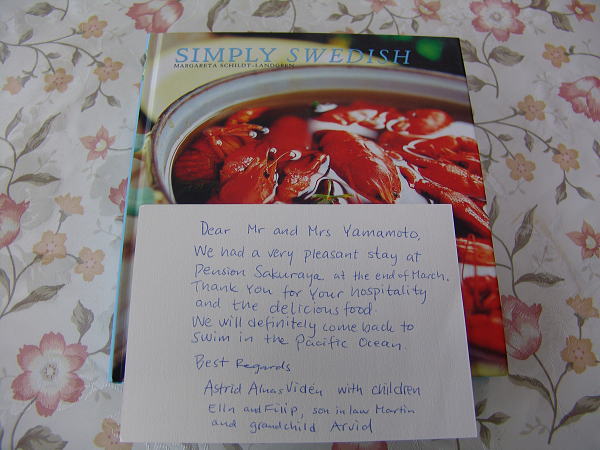 SIMPLY SWEDISH
MARGARETA SCHILDT-LANDGREN
Dear Mr and Mrs Yamamoto,
We had a very pleasant stay at
Pension Sakuraya at the end of March.
Thank you for your hospitality
and the delicious food.
We will definitely come back to
swim in the Pacific Ocean.
Best Regards
Astrid Almas Vidén with children
Elin and Filip, son in law Martin
and grandchild Arvid